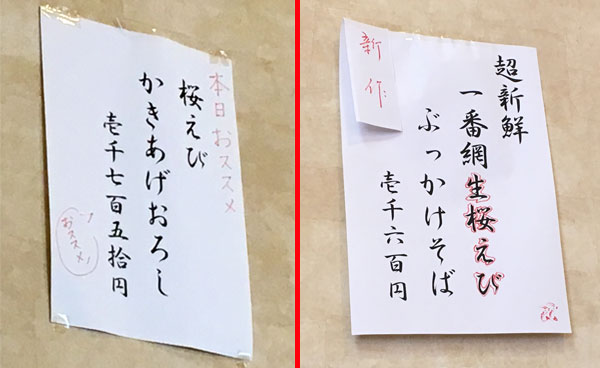 本日おススメ
桜えび
かきあげおろし
壱千七百五拾円
おススメ!
新作
超新鮮
一番網生桜えび
ぶっかけそば
壱千六百円